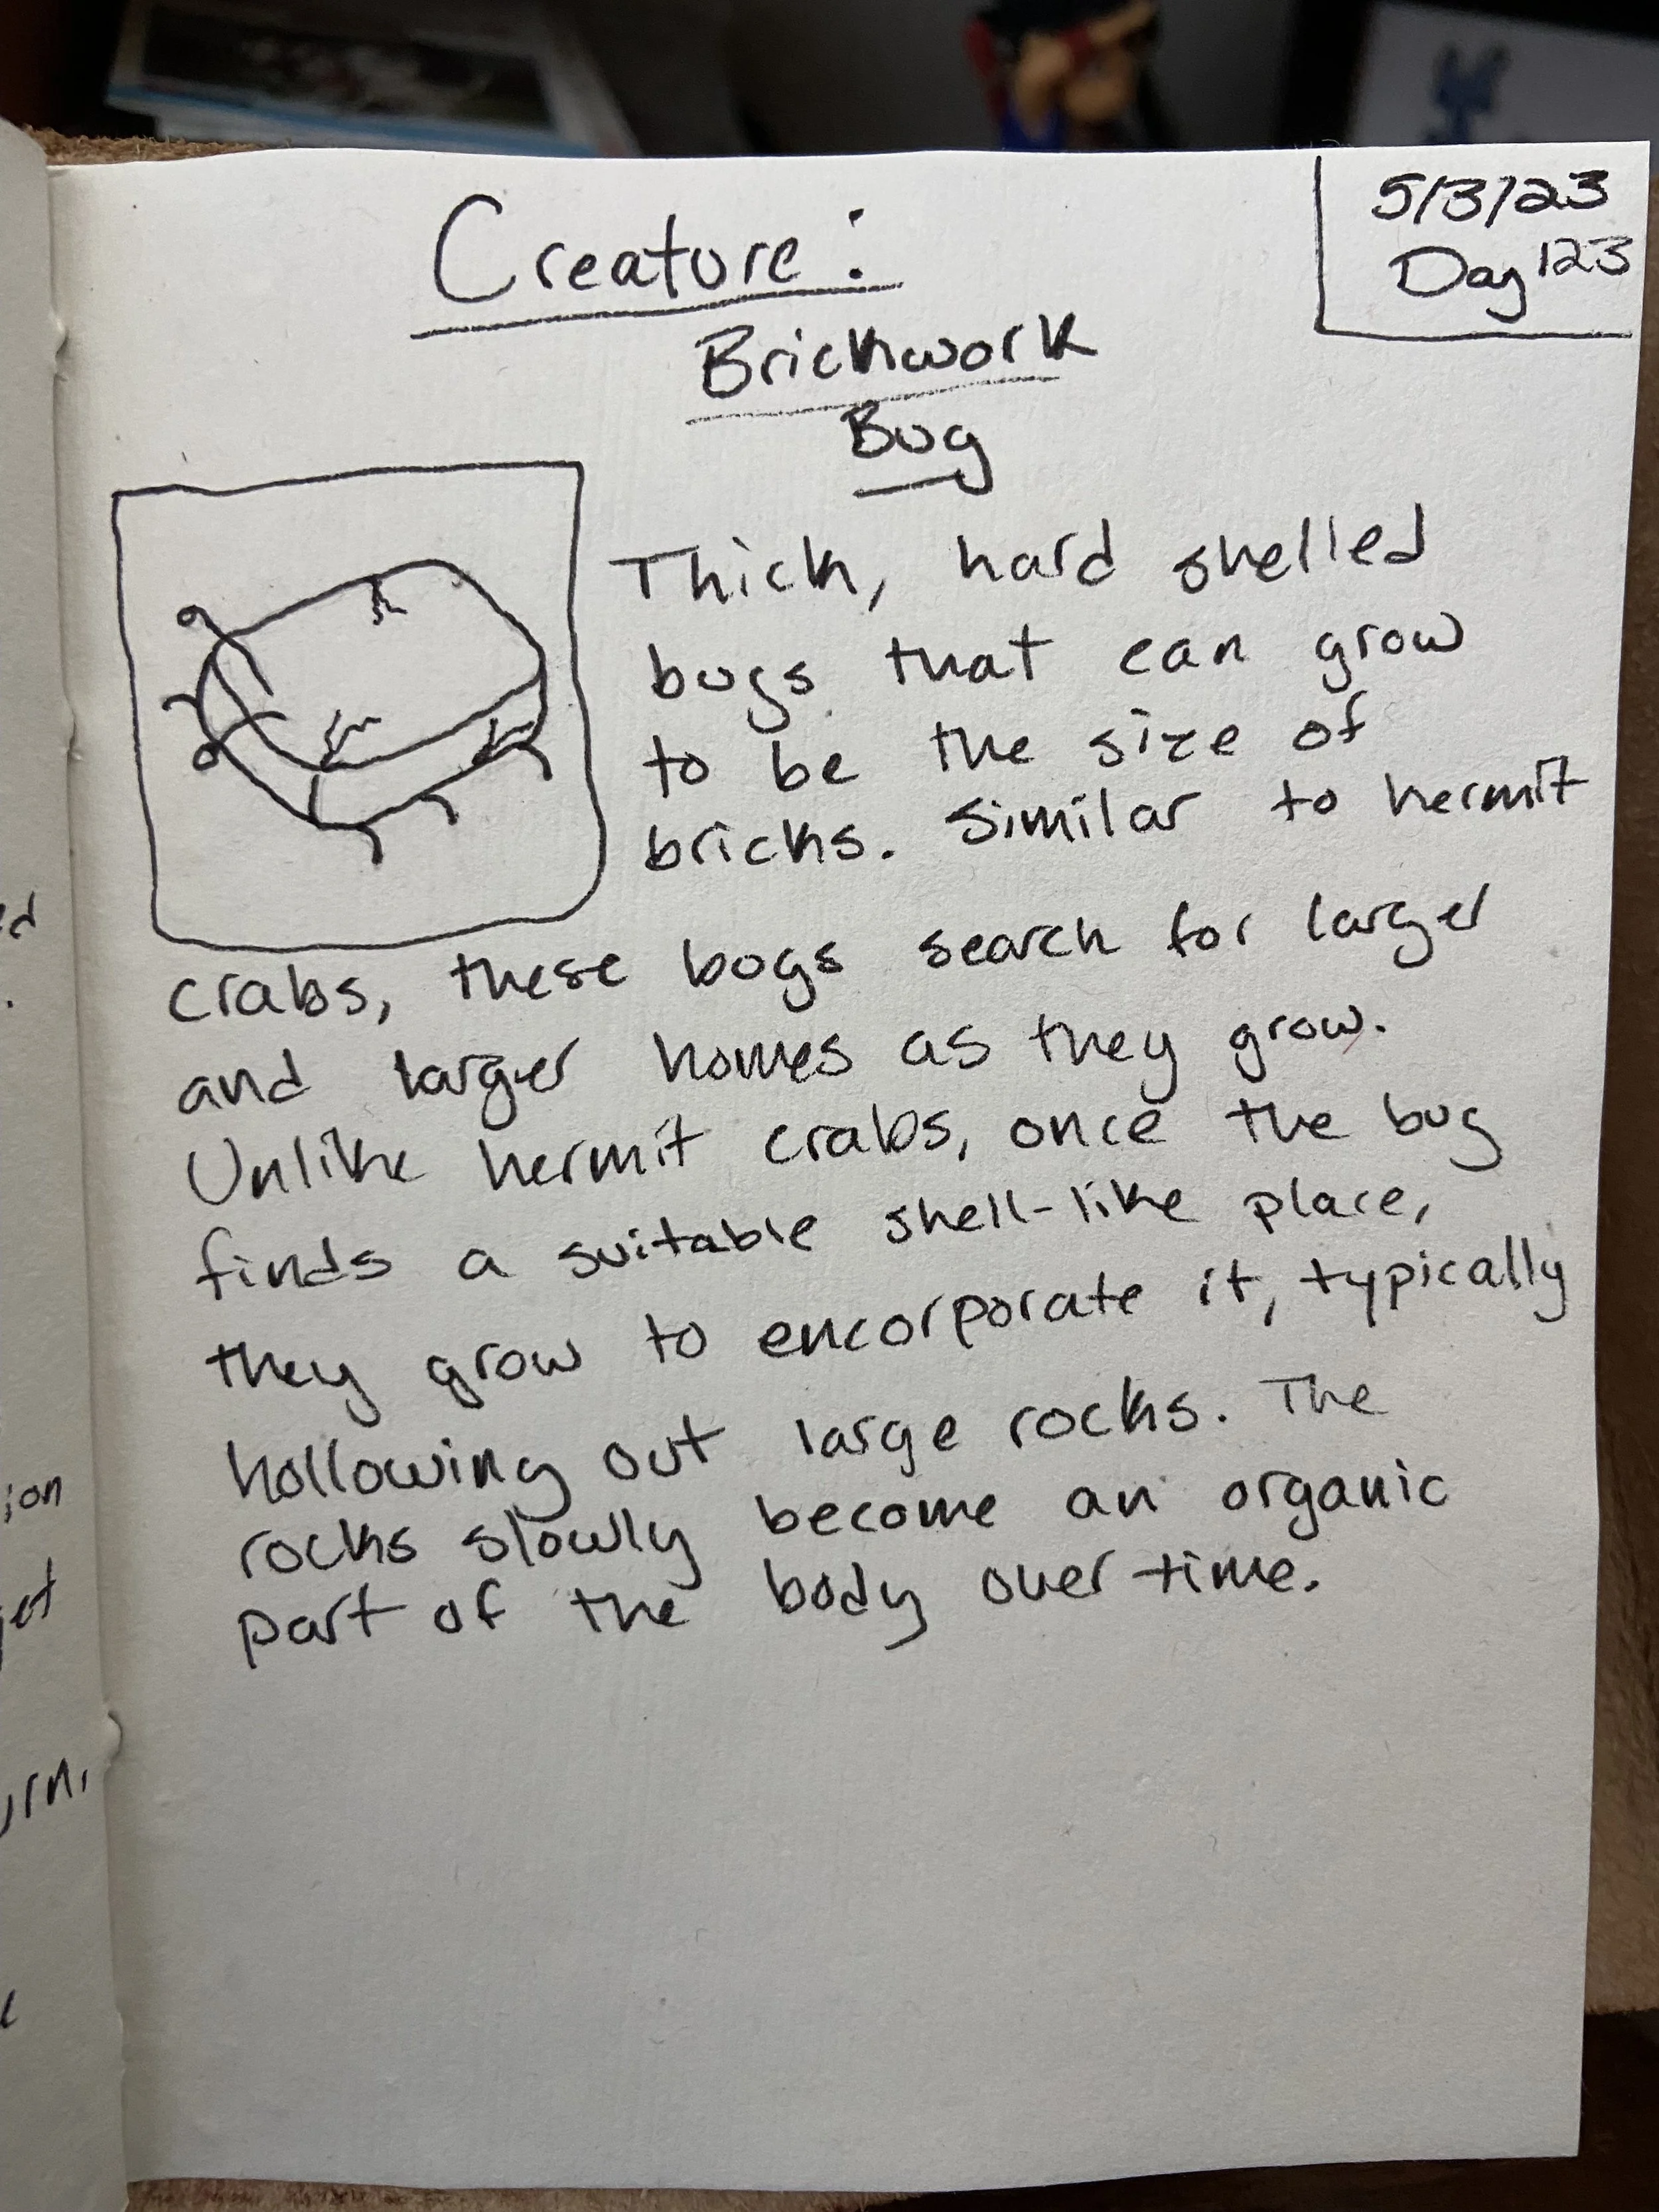 5/3/23
Day 123
Creature:
Brickwork
Bug
Thick, hard shelled
bugs that can grow
to be the size of
bricks. Similar to hermit
crabs, these bugs search for larger
and larger homes as they grow.
Unlike hermit crabs, once the bug
finds a suitable shell-like place,
they grow to encorporate it, typically
hollowing out large rocks. The
rocks slowly become an organic
part of the body over time.